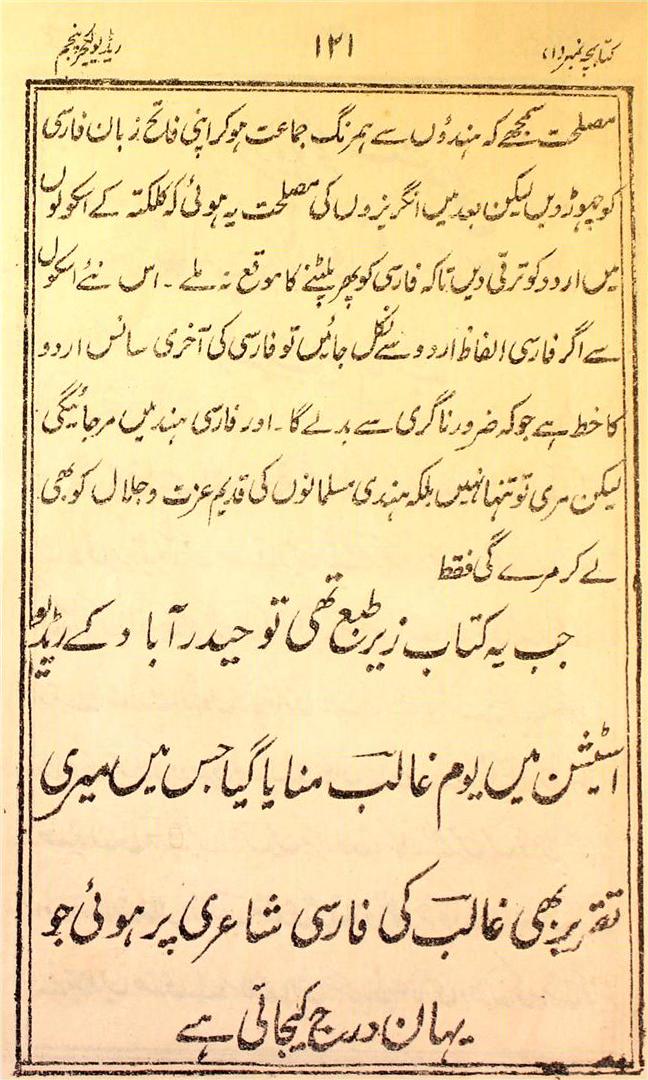 کتابچہ نمبر (۱) ۱۲۱ ریڈیو لکچر پنجم
مصلحت سمجھے کہ ہندوُں سے ہمرنگ جماعت ہوکر اپنی فاتح زبان فارسی
کو چھوڑ دیں لیکن بعد میں انگریزوں کی مصلحت یہ ہوئی کہ کلکتہ کے اسکولوں
میں اردو کو ترقی دیں تاکہ فارسی کو پھر پلٹنے کا موقع نہ ملے ۔ اس نئے اسکول
سے اگر فارسی الفاظ اردو سے نکل جائیں تو فارسی کی آخری سانس اردو
کا خط ہے جو کہ ضرور ناگری سے بدلے گا ۔ اور فارسی ہند میں مرجائیگی
لیکن مری تو تنہا نہیں بلکہ ہندی مسلمانوں کی قدیم عزت و جلال کو بھی
لے کر مرے گی فقط
جب یہ کتاب زیر طبع تھی تو حیدر آباد کے ریڈیو
اسٹیشن میں یوم غالب منایا گیا جس میں میری
تقریر بھی غالب کی فارسی شاعری پر ہوئی جو
یہان درج کیجاتی ہے